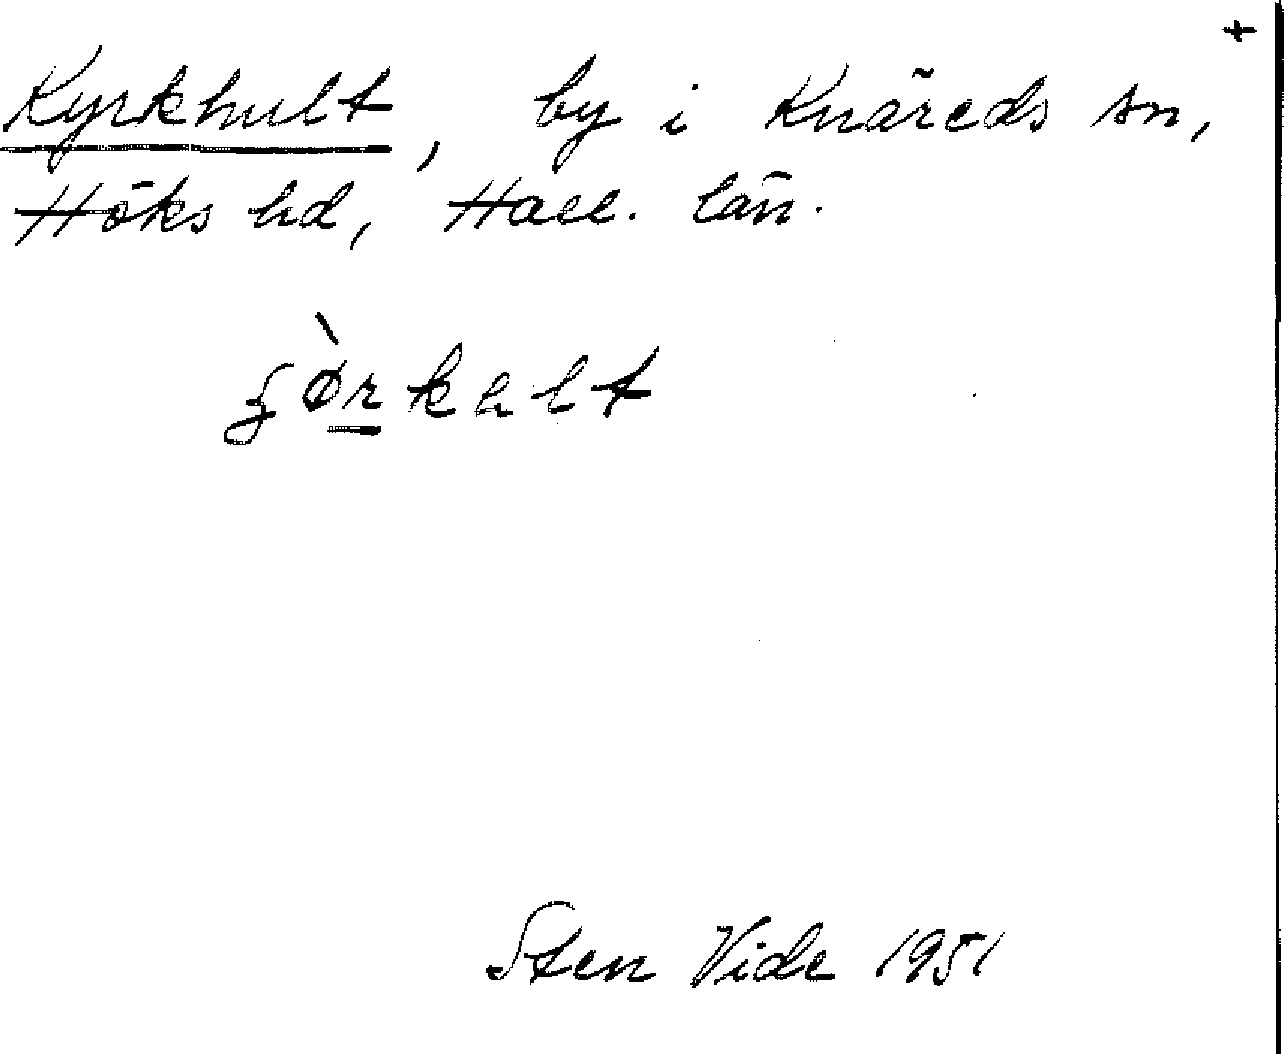 +
Kyrkhult, by i Knäreds sn,
Höks hd, Hall. län.
Sten Vide 1951